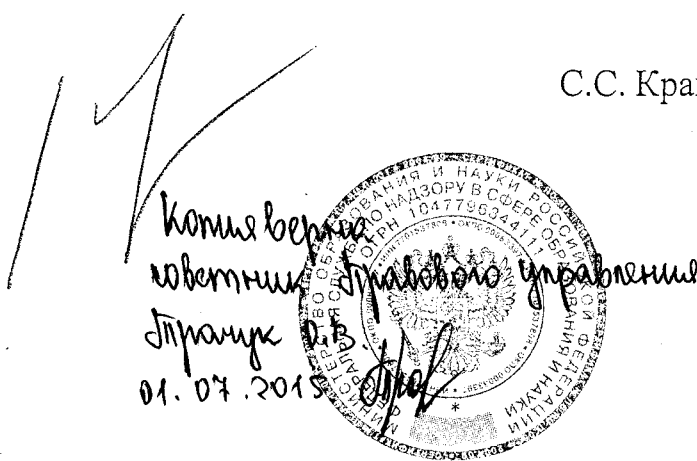 С.С. Кра
Копия верна
советник Правового управления
Трачук
01.07.2015
МИНИСТЕРСТВО ОБРАЗОВАНИЯ И НАУКИ РОССИЙСКОЙ ФЕДЕРАЦИИ
ФЕДЕРАЛЬНАЯ СЛУЖБА ПО НАДЗОРУ В СФЕРЕ ОБРАЗОВАНИЯ И НАУКИ
ОГРН 1047796344111